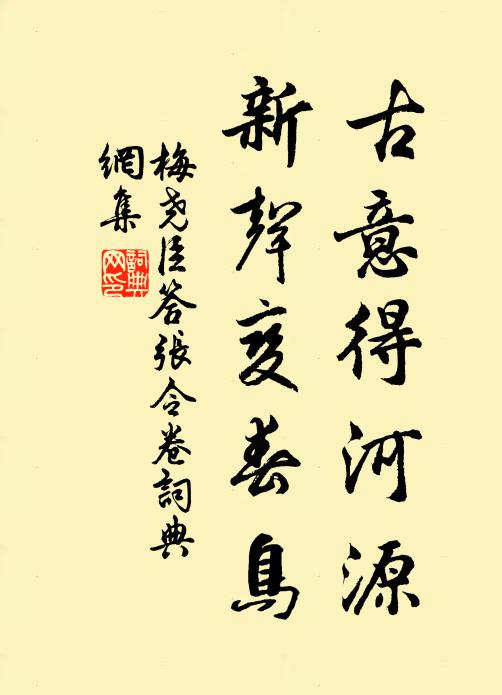 古意得河源
新聲变春鳥
梅堯臣答張令卷詞典
網集
詞典
网印